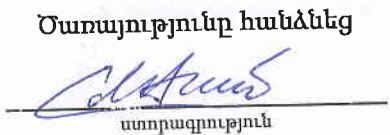 Ծառայությունը հանձնեց
ստորագրություն